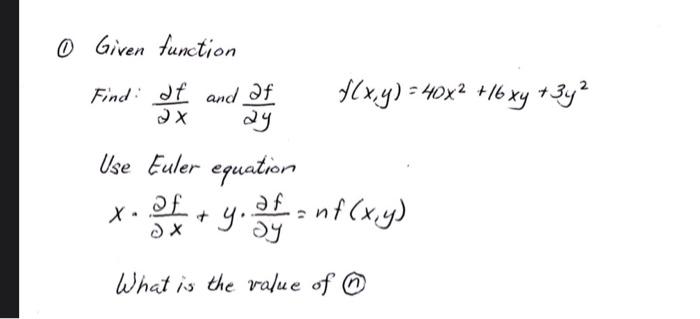 ① Given function
Find: ∂f/∂x and ∂f/∂y f(x,y) = 40x² + 16xy + 3y²
Use Euler equation
x · ∂f/∂x + y · ∂f/∂y = nf(x,y)
What is the value of ⓝ